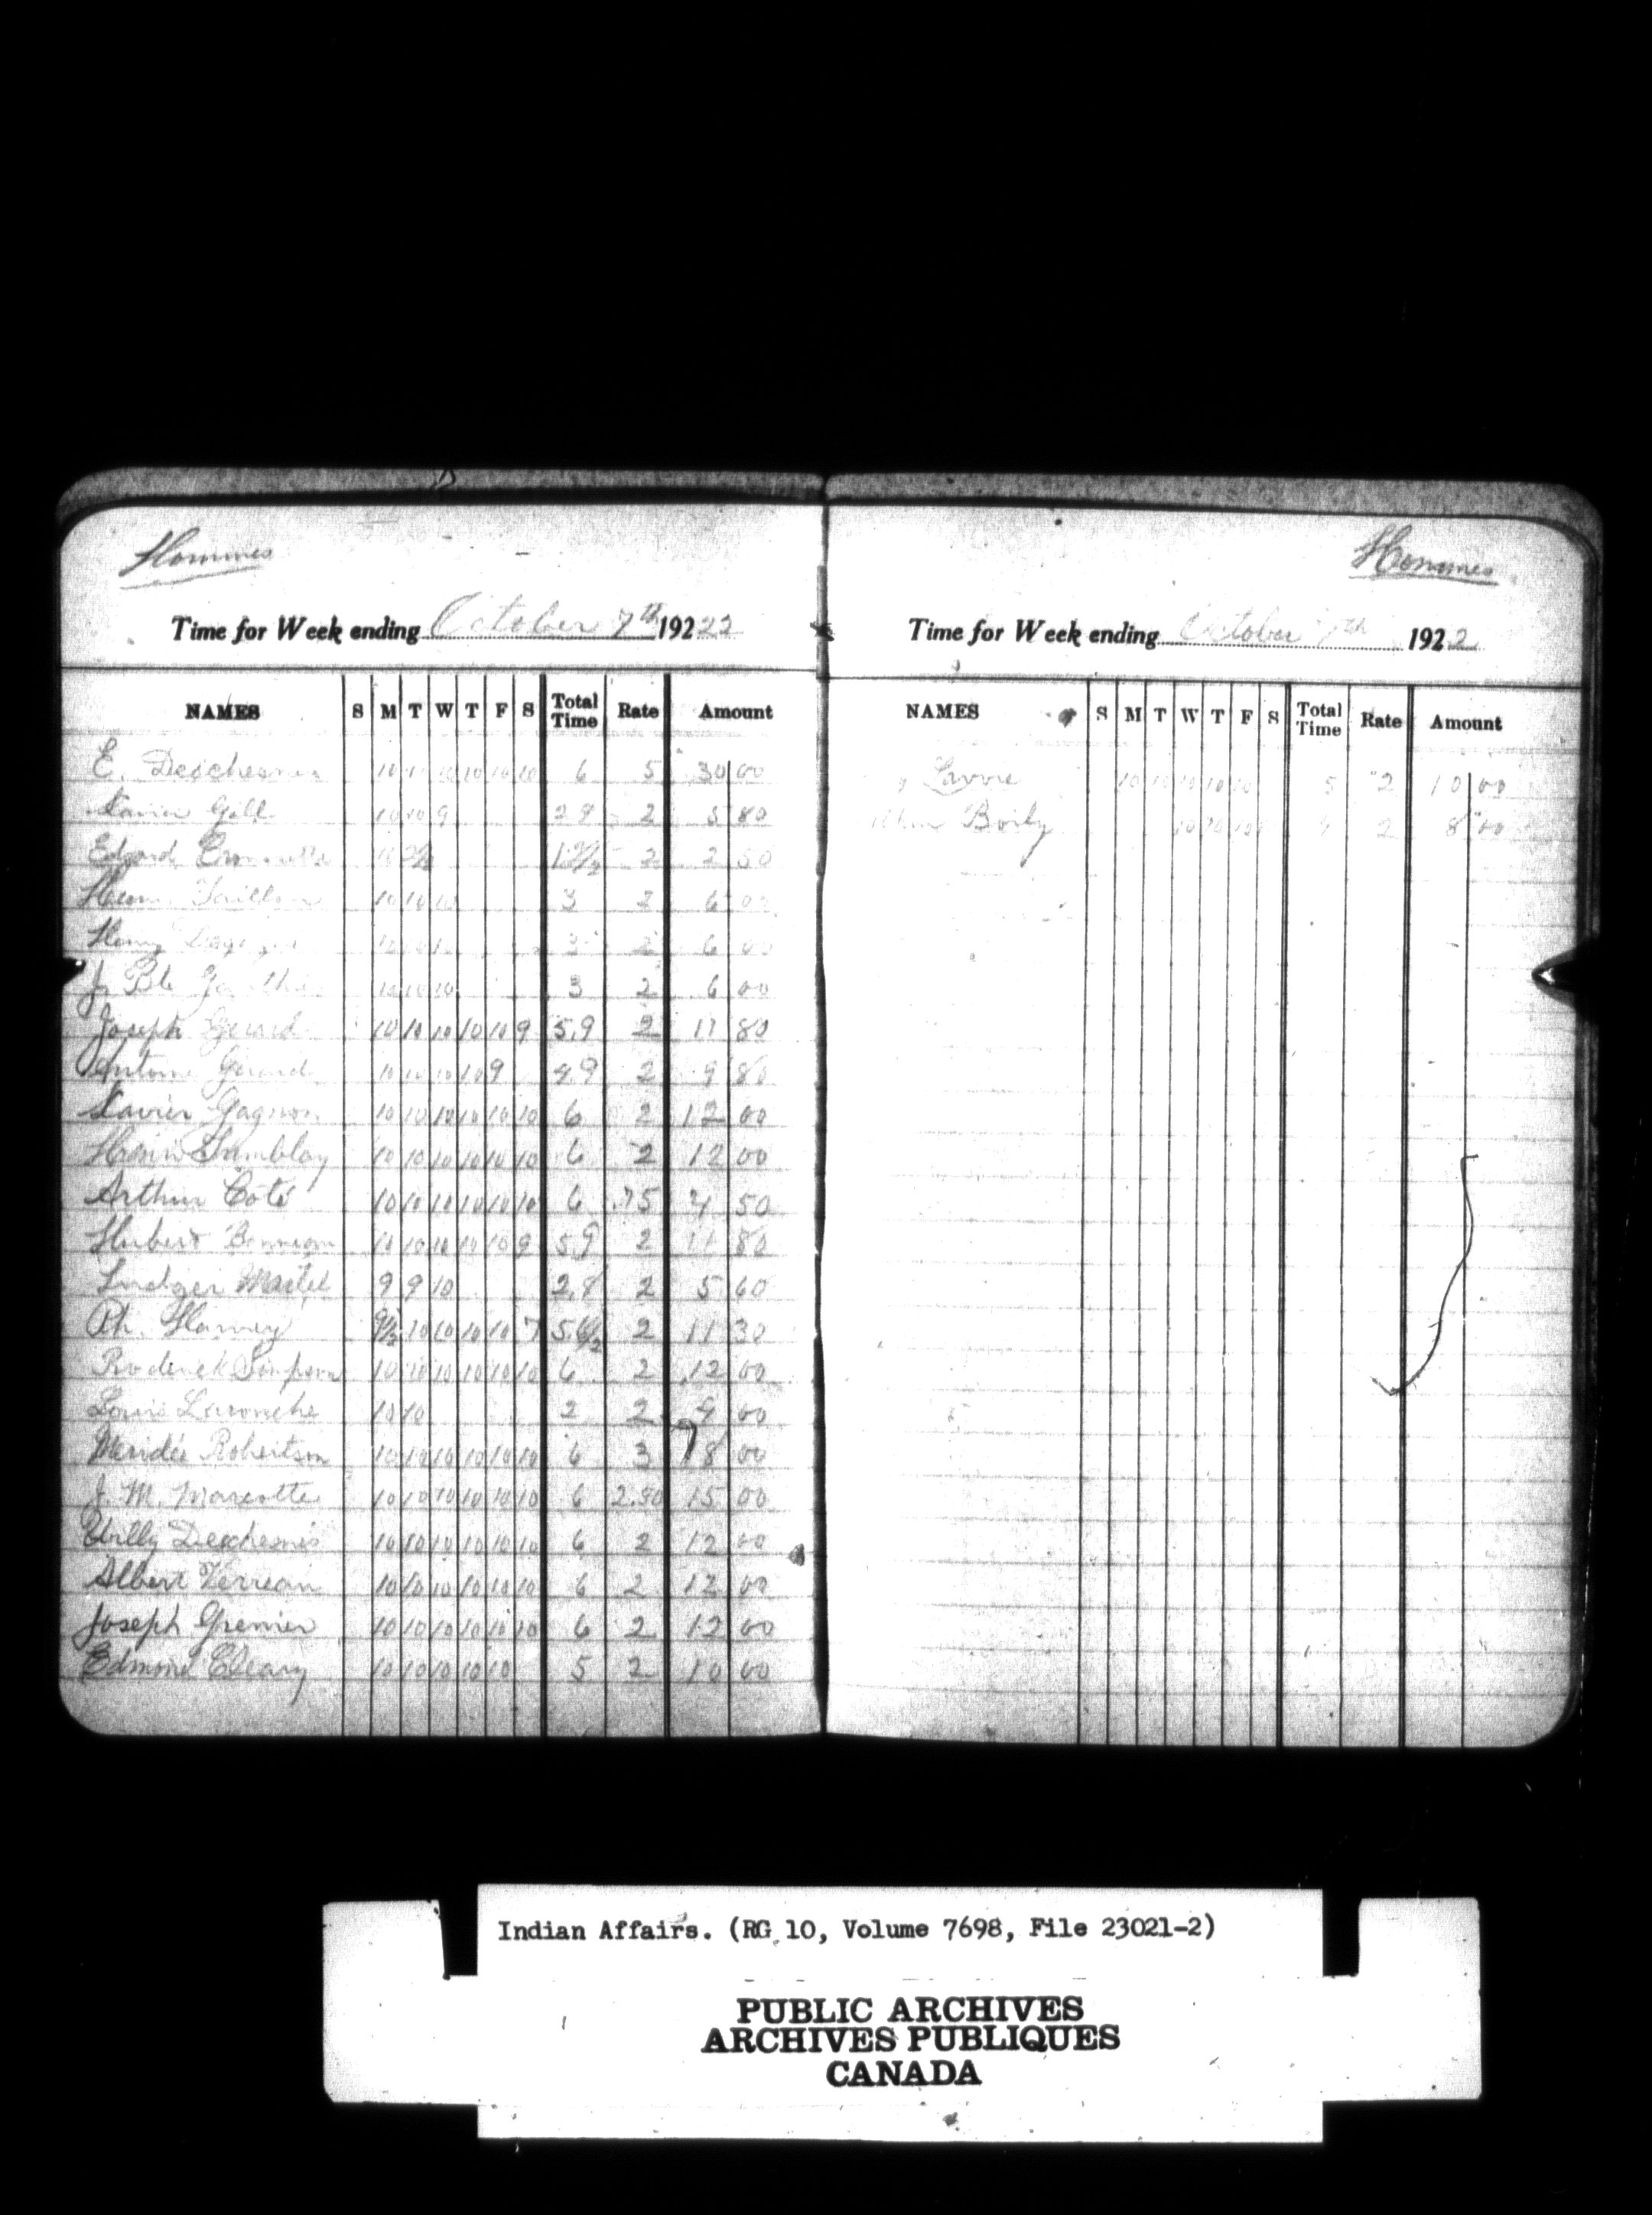 Hommes
Time for Week ending October 7th 192 22
NAMES S M T W T F S Total Time Rate Amount
E. Deschesnes 10 10 10 10 10 10 6 5 30 00
Xavier Gill 10 10 9 2 9 2 5 80
Edgard 10 2 2 50
Taillon 10 10 10 3 2 6 00
Henry 3 2 6 00
J. Bte 10 10 10 3 2 6 00
Joseph Gerard 10 10 10 10 10 9 5,9 2 11 80
Antoine Gerard 10 10 10 10 9 4,9 2 9 80
Xavier Gagnon 10 10 10 10 10 10 6 2 12 00
Tremblay 10 10 10 10 10 10 6 2 12 00
Arthur Côté 10 10 10 10 10 10 6 .75 4 50
Hubert 10 10 10 10 10 9 5,9 2 11 80
Ludger Martel 9 9 10 2,8 2 5 60
Ph. Harvey 9½ 10 10 10 10 7 5.6½ 2 11 30
Roderick Simpson 10 10 10 10 10 10 6 2 12 00
Louis 10 10 2 2 4 00
Méridée Robertson 10 10 10 10 10 10 6 3 18 00
J. M. Marcotte 10 10 10 10 10 10 6 2.50 15 00
Willy Deschesnes 10 10 10 10 10 10 6 2 12 00
Albert Verreau 10 10 10 10 10 10 6 2 12 00
Joseph Grenier 10 10 10 10 10 10 6 2 12 00
Edmond Cleary 10 10 10 10 10 5 2 10 00
Hommes
Time for Week ending October 7th 192 2
NAMES S M T W T F S Total Time Rate Amount
Lavoie 10 10 10 10 10 5 2 10 00
Boily 10 10 10 4 2 8 00
Indian Affairs. (RG 10, Volume 7698, File 23021-2)
PUBLIC ARCHIVES
ARCHIVES PUBLIQUES
CANADA